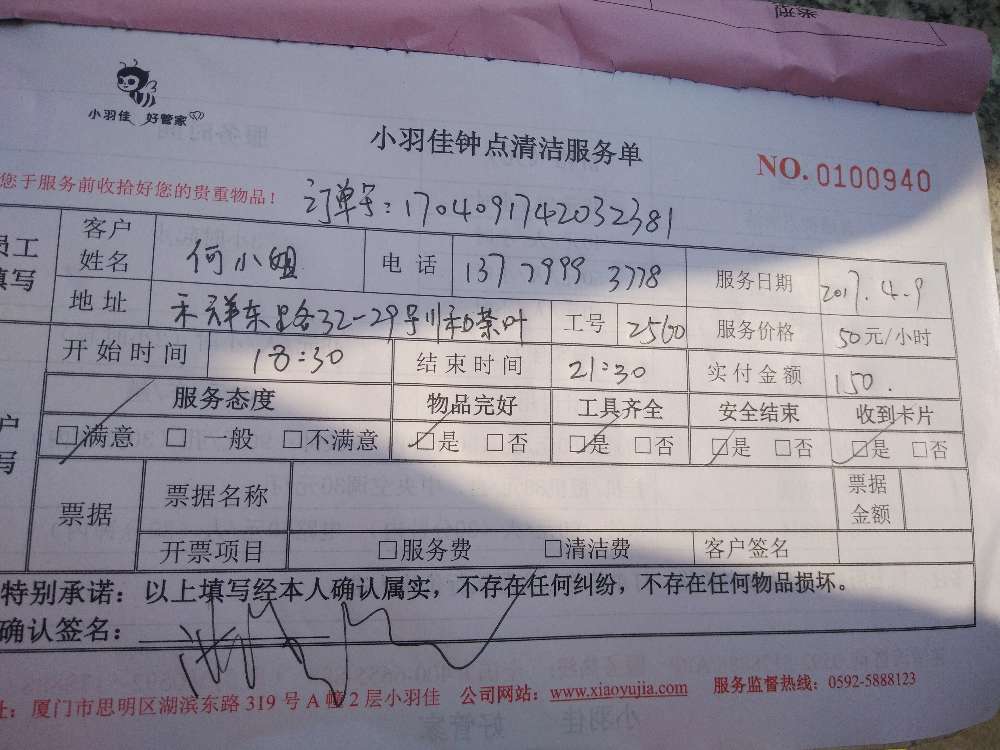 小羽佳 好管家
小羽佳钟点清洁服务单
NO. 0100940
您于服务前收拾好您的贵重物品！
订单号：1704091742032381
员工填写
客户姓名 何小姐 电话 137 7999 3778 服务日期 2017.4.9
地址 禾祥东路32-29号 茶叶 工号 2560 服务价格 50元/小时
开始时间 18:30 结束时间 21:30 实付金额 150.
服务态度 物品完好 工具齐全 安全结束 收到卡片
户写
□满意 □一般 □不满意 □是 □否 □是 □否 □是 □否 □是 □否
票据 票据名称 票据金额
开票项目 □服务费 □清洁费 客户签名
特别承诺：以上填写经本人确认属实，不存在任何纠纷，不存在任何物品损坏。
确认签名：
址：厦门市思明区湖滨东路319号A幢2层小羽佳 公司网站：www.xiaoyujia.com 服务监督热线：0592-5888123